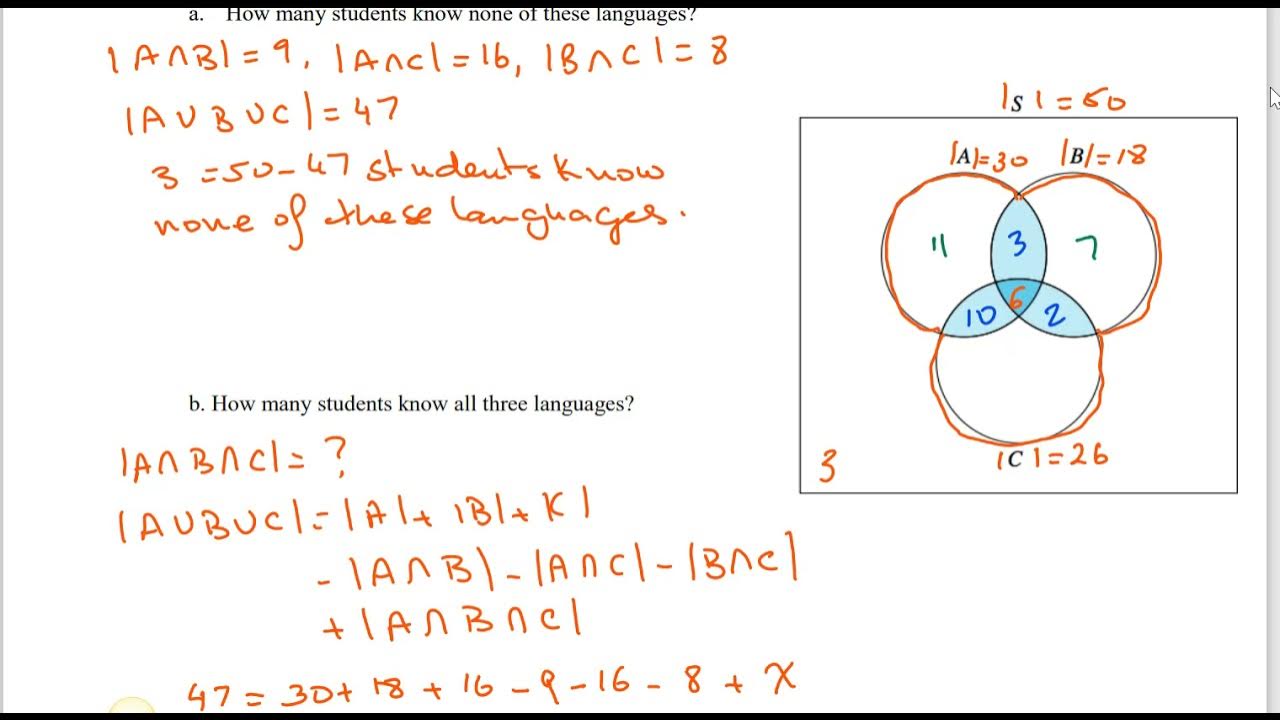 a. How many students know none of these languages?
|A∩B| = 9, |A∩C| = 16, |B∩C| = 8
|A∪B∪C| = 47
3 = 50 - 47 students know
none of these languages.
|S| = 50
|A| = 30 |B| = 18
11 3 7
10 6 2
3
|C| = 26
b. How many students know all three languages?
|A∩B∩C| = ?
|A∪B∪C| = |A| + |B| + |C|
- |A∩B| - |A∩C| - |B∩C|
+ |A∩B∩C|
47 = 30 + 18 + 16 - 9 - 16 - 8 + x